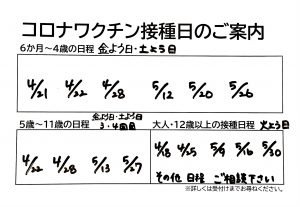 コロナワクチン接種日のご案内
6か月～4歳の日程 金よう日・土よう日
4/21 4/22 4/28 5/12 5/20 5/26
5歳～11歳の日程 金よう日・土よう日
3・4回目
4/22 4/28 5/13 5/27
大人・12歳以上の接種日程 火よう日
4/18 4/25 5/9 5/16 5/30
その他 日程 ご相談下さい
※詳しくは受付けまでお尋ねください。